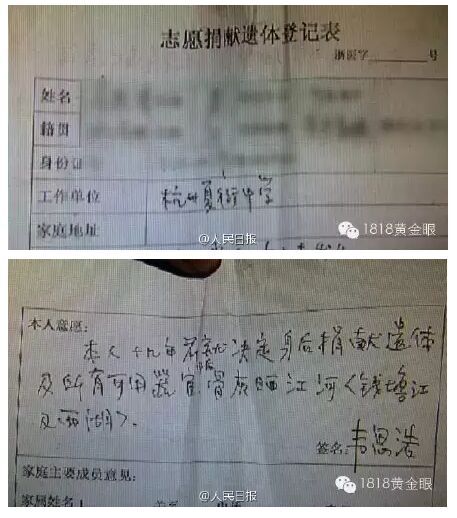 志愿捐献遗体登记表
浙医字 号
姓名
籍贯
身份证
工作单位 杭州夏衍中学
家庭地址
1818黄金眼
@人民日报
本人意愿:
本人十九年前就决定身后捐献遗体
及所有可用器官,骨灰洒江河《钱塘江
及西湖》.
签名: 韦思浩
家庭主要成员意见:
1818黄金眼
家属姓名
@人民日报